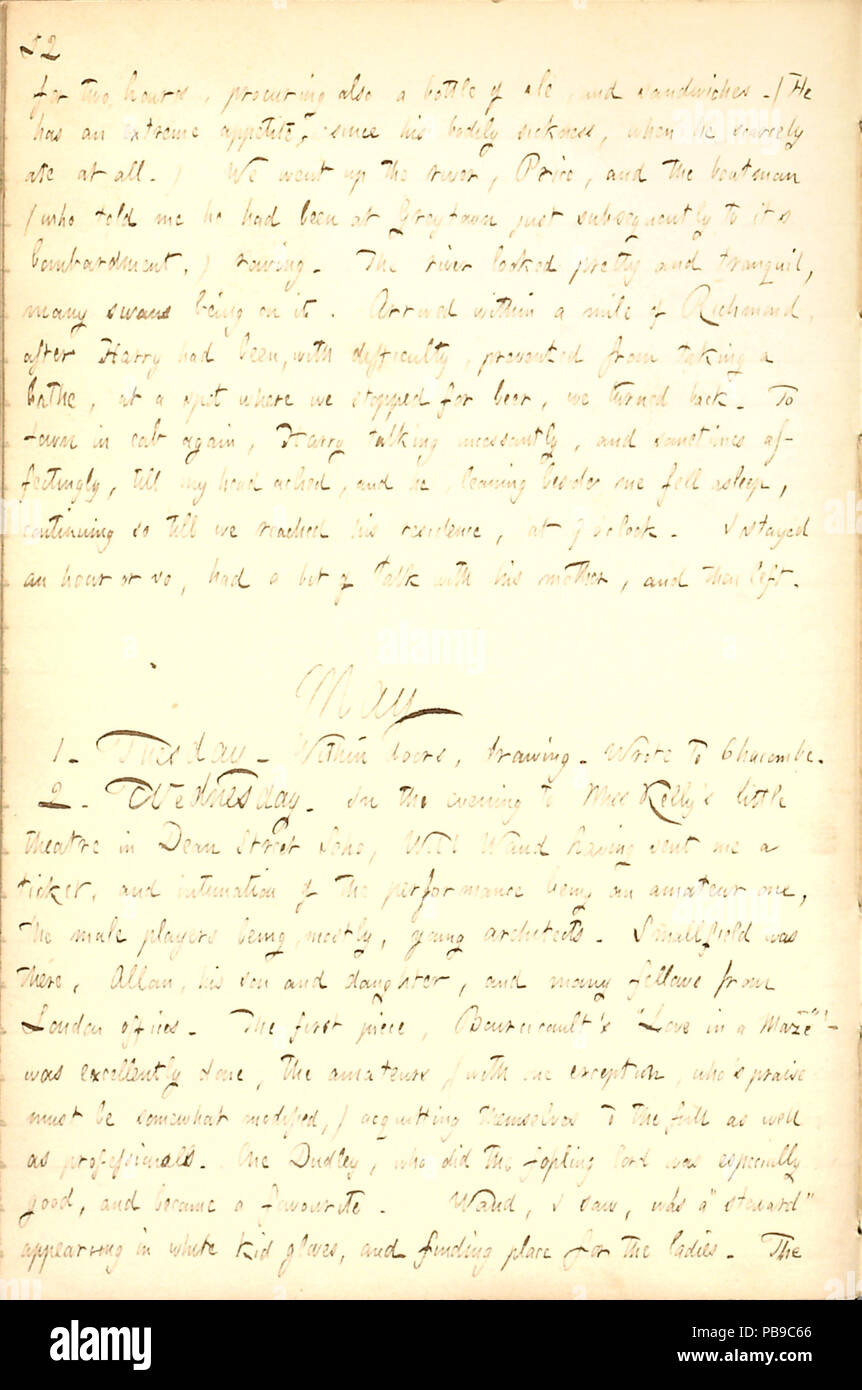 52
for two hours, procuring also a bottle of ale, and sandwiches. (He
has an extreme appetite, since his bodily sickness, when he scarcely
ate at all.) We went up the river, Price, and the boatman
(who told me he had been at Greytown just subsequently to it's
bombardment,) rowing. The river looked pretty and tranquil,
many swans being on it. Arrived within a mile of Richmond,
after Harry had been, with difficulty, prevented from taking a
bathe, at a spot where we stopped for beer, we turned back. To
town in cab again, Harry talking incessantly, and sometimes af-
fectingly, till my head ached, and he, leaning beside me fell asleep,
continuing so till we reached his residence, at 9 o'clock. I stayed
an hour or so, had a bit of talk with his mother, and then left.
May
1. Tuesday. Within doors, drawing. Wrote to Chacombe.
2. Wednesday. In the evening to Miss Kelly's little
theatre in Dean Street Soho, Will Waud having sent me a
ticket, and intimation of the performance being an amateur one,
the male players being, mostly, young architects. Smallfield was
there, Allan, his son and daughter, and many fellows from
London offices. The first piece, Bourcicault's "Love in a Maze"
was excellently done, the amateurs, (with one exception, who's praise
must be somewhat modified,) acquitting themselves to the full as well
as professionals. One Dudley, who did the lord was especially
good, and became a favourite. Waud, I saw, was a "steward"
appearing in white kid gloves, and finding place for the ladies. The
alamy
Image ID: PB9C66
www.alamy.com